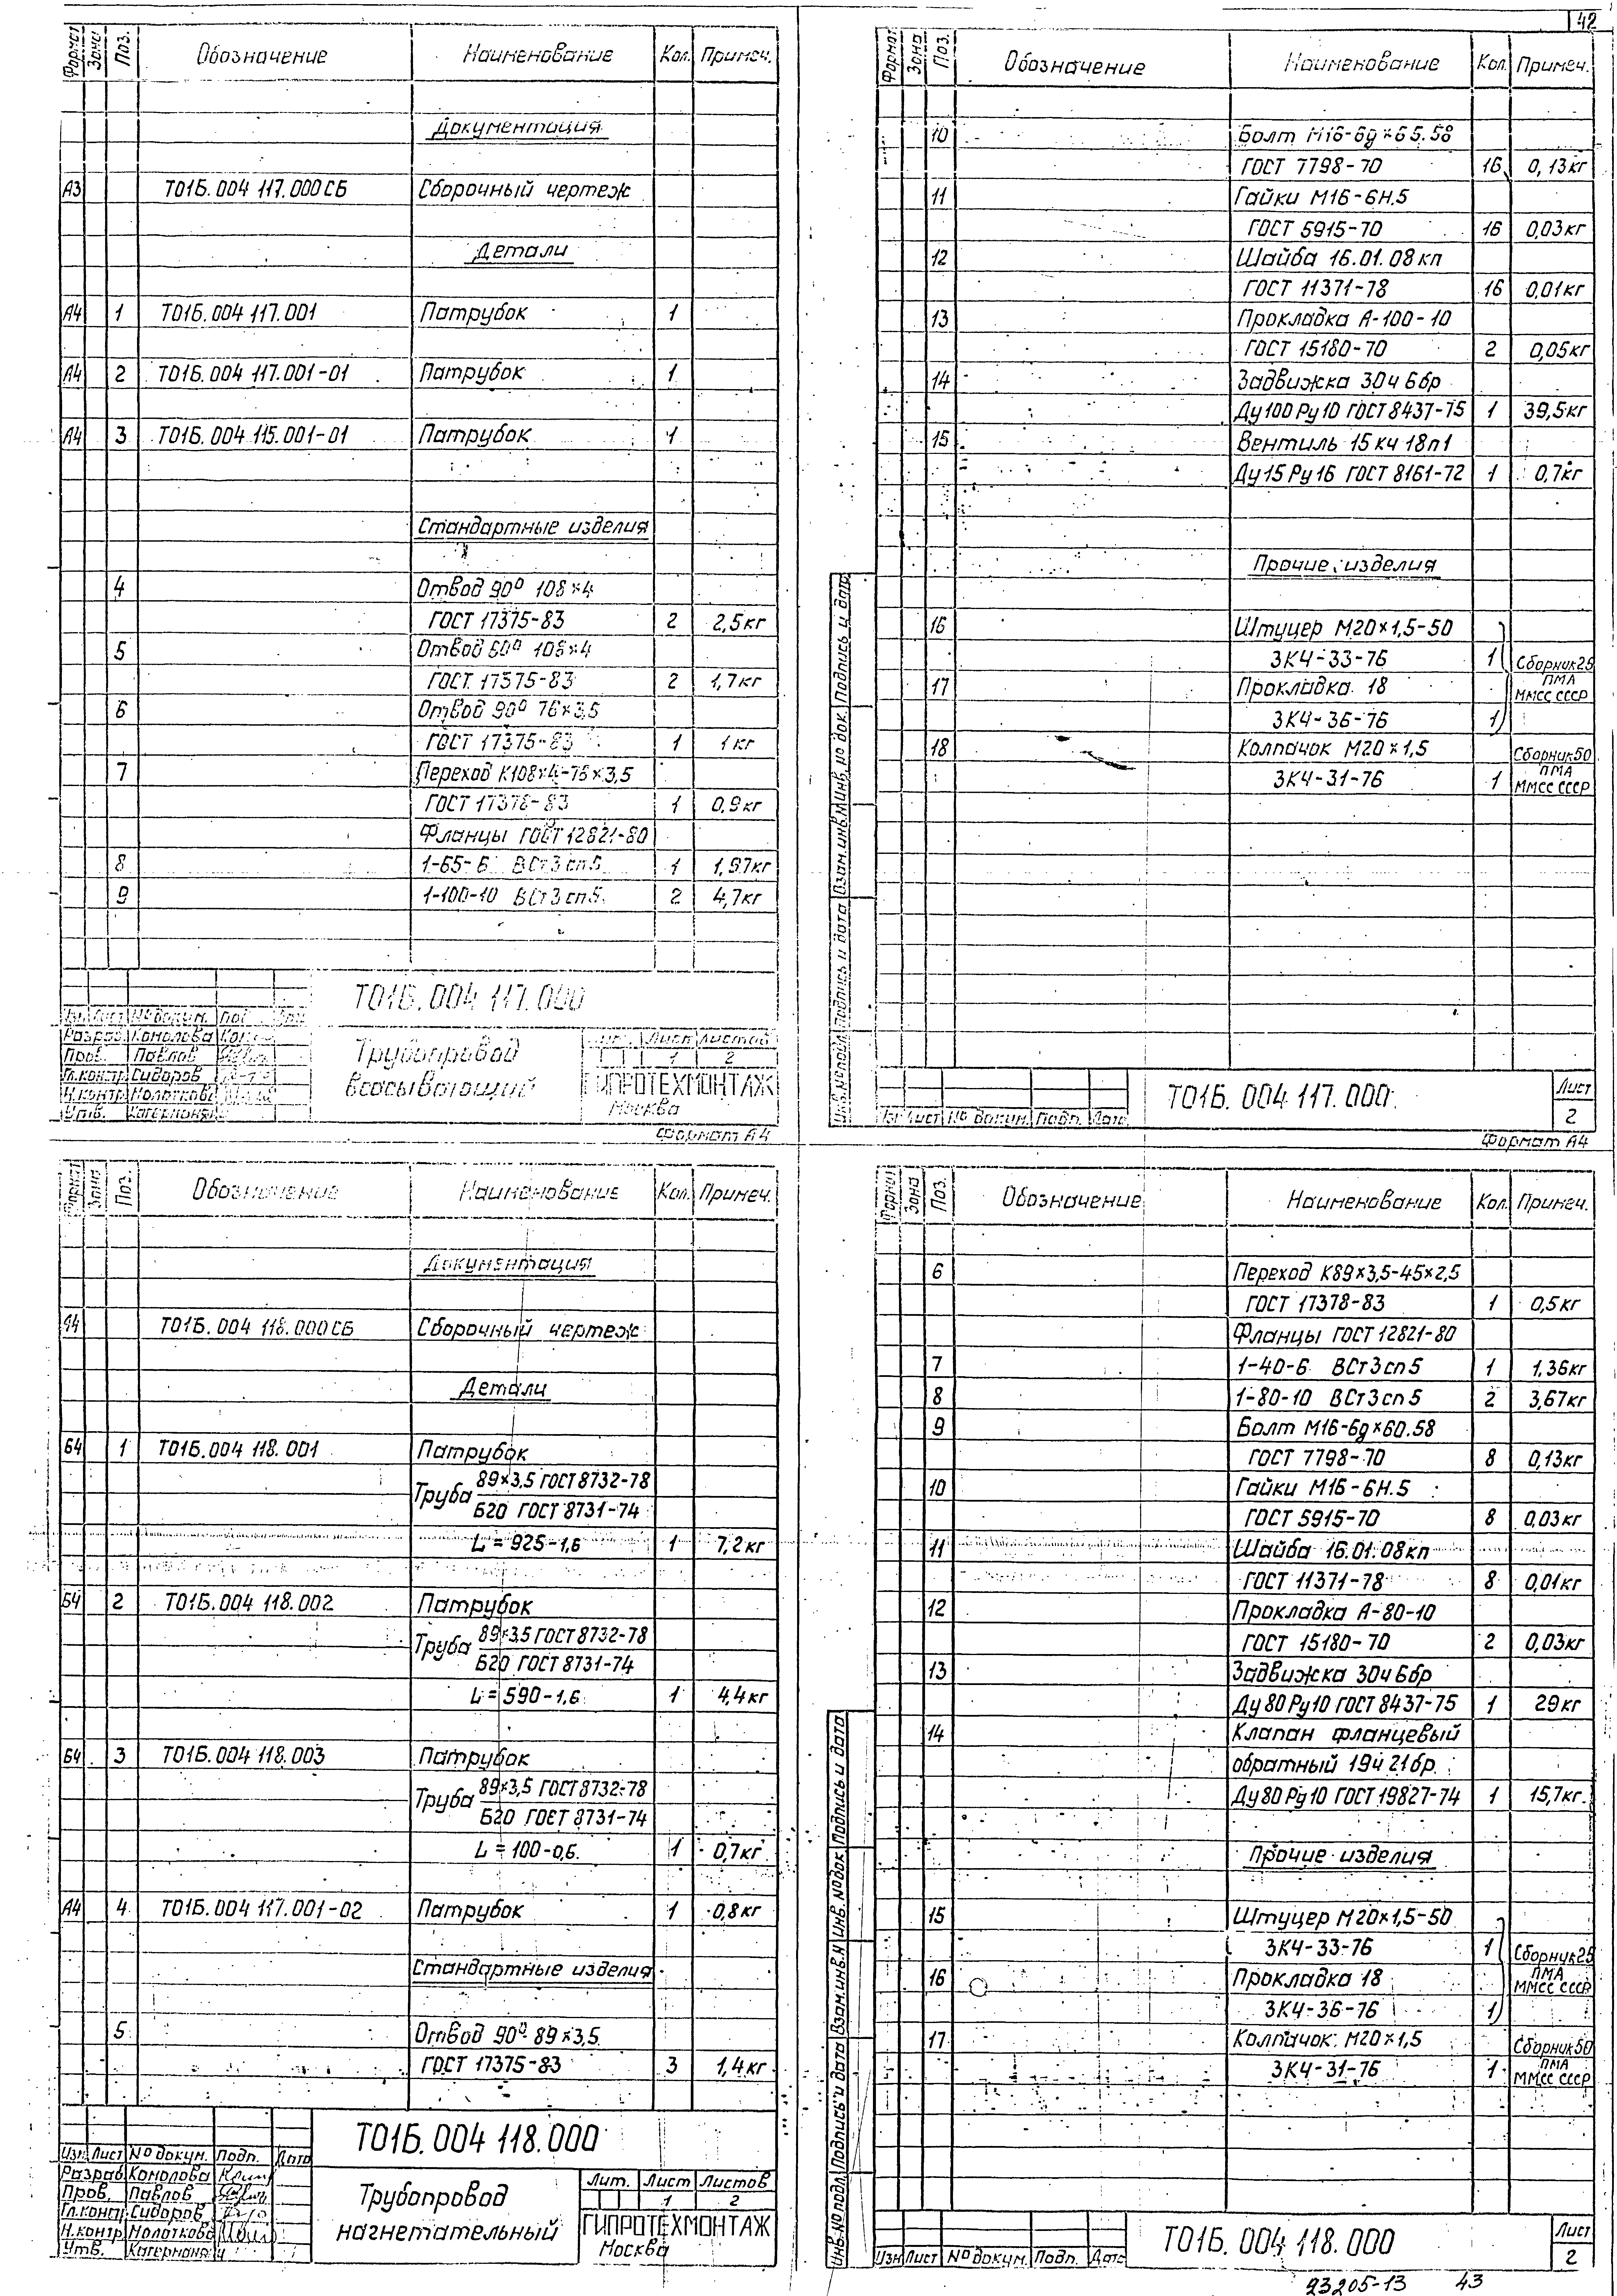 42
Формат Зона Поз. Обозначение Наименование Кол. Примеч.
Документация
А3 Т01Б.004 117.000СБ Сборочный чертеж
Детали
А4 1 Т01Б.004 117.001 Патрубок 1
А4 2 Т01Б.004 117.001-01 Патрубок 1
А4 3 Т01Б.004 115.001-01 Патрубок 1
Стандартные изделия
4 Отвод 90° 108×4
ГОСТ 17375-83 2 2,5кг
5 Отвод 60° 108×4
ГОСТ 17375-83 2 1,7кг
6 Отвод 90° 76×3,5
ГОСТ 17375-83 1 1кг
7 Переход К108×4-76×3,5
ГОСТ 17378-83 1 0,9кг
Фланцы ГОСТ 12821-80
8 1-65-6 ВСт3сп5 1 1,97кг
9 1-100-10 ВСт3сп5 2 4,7кг
Т01Б.004 117.000
Лист №докум.
Разраб. Комолова
Пров. Павлов
Гл.контр Сидоров
Н.контр.
Утв.
Трубопровод
всасывающий
Лист Листов
1 2
ГИПРОТЕХМОНТАЖ
Москва
Формат А4
Формат Зона Поз. Обозначение Наименование Кол. Примеч.
10 Болт М16-6g×65.58
ГОСТ 7798-70 16 0,13кг
11 Гайки М16-6Н.5
ГОСТ 5915-70 16 0,03кг
12 Шайба 16.01.08кп
ГОСТ 11371-78 16 0,01кг
13 Прокладка А-100-10
ГОСТ 15180-70 2 0,05кг
14 Задвижка 30ч6бр
Ду100 Ру10 ГОСТ 8437-75 1 39,5кг
15 Вентиль 15кч18п1
Ду15 Ру16 ГОСТ 8161-72 1 0,7кг
Прочие изделия
16 Штуцер М20×1,5-50
ЗК4-33-76 1 Сборник 25
17 Прокладка 18 ПМА
ММСС СССР
ЗК4-36-76 1
18 Колпачок М20×1,5 Сборник 50
ЗК4-31-76 1 ПМА
ММСС СССР
Инв.№подл. Подпись и дата Взам.инв.№ Инв.№док. Подпись и дата
Лист №докум. Подп. Дата
Т01Б.004 117.000
Лист
2
Формат А4
Формат Зона Поз. Обозначение Наименование Кол. Примеч.
Документация
А4 Т01Б.004 118.000СБ Сборочный чертеж
Детали
Б4 1 Т01Б.004 118.001 Патрубок
Труба 89×3,5 ГОСТ 8732-78
Б20 ГОСТ 8731-74
L=925-1,6 1 7,2кг
Б4 2 Т01Б.004 118.002 Патрубок
Труба 89×3,5 ГОСТ 8732-78
Б20 ГОСТ 8731-74
L=590-1,6 1 4,4кг
Б4 3 Т01Б.004 118.003 Патрубок
Труба 89×3,5 ГОСТ 8732-78
Б20 ГОСТ 8731-74
L=100-0,6 1 0,7кг
А4 4 Т01Б.004 117.001-02 Патрубок 1 0,8кг
Стандартные изделия
5 Отвод 90° 89×3,5
ГОСТ 17375-83 3 1,4кг
Т01Б.004 118.000
Изм Лист №докум. Подп. Дата
Разраб Комолова
Пров. Павлов
Гл.контр Сидоров
Н.контр
Утв.
Трубопровод
нагнетательный
Лит. Лист Листов
1 2
ГИПРОТЕХМОНТАЖ
Москва
Формат Зона Поз. Обозначение Наименование Кол. Примеч.
6 Переход К89×3,5-45×2,5
ГОСТ 17378-83 1 0,5кг
Фланцы ГОСТ 12821-80
7 1-40-6 ВСт3сп5 1 1,36кг
8 1-80-10 ВСт3сп5 2 3,67кг
9 Болт М16-6g×60.58
ГОСТ 7798-70 8 0,13кг
10 Гайки М16-6Н.5
ГОСТ 5915-70 8 0,03кг
11 Шайба 16.01.08кп
ГОСТ 11371-78 8 0,01кг
12 Прокладка А-80-10
ГОСТ 15180-70 2 0,03кг
13 Задвижка 30ч6бр
Ду80 Ру10 ГОСТ 8437-75 1 29кг
14 Клапан фланцевый
обратный 19ч21бр
Ду80 Ру10 ГОСТ 19827-74 1 15,7кг
Прочие изделия
15 Штуцер М20×1,5-50
ЗК4-33-76 1 Сборник 25
16 Прокладка 18 ПМА
ММСС СССР
ЗК4-36-76 1
17 Колпачок М20×1,5 Сборник 50
ЗК4-31-76 1 ПМА
ММСС СССР
Инв.№подл. Подпись и дата Взам.инв.№ Инв.№док Подпись и дата
Изм Лист №докум. Подп. Дата
Т01Б.004 118.000
Лист
2
23205-13 43